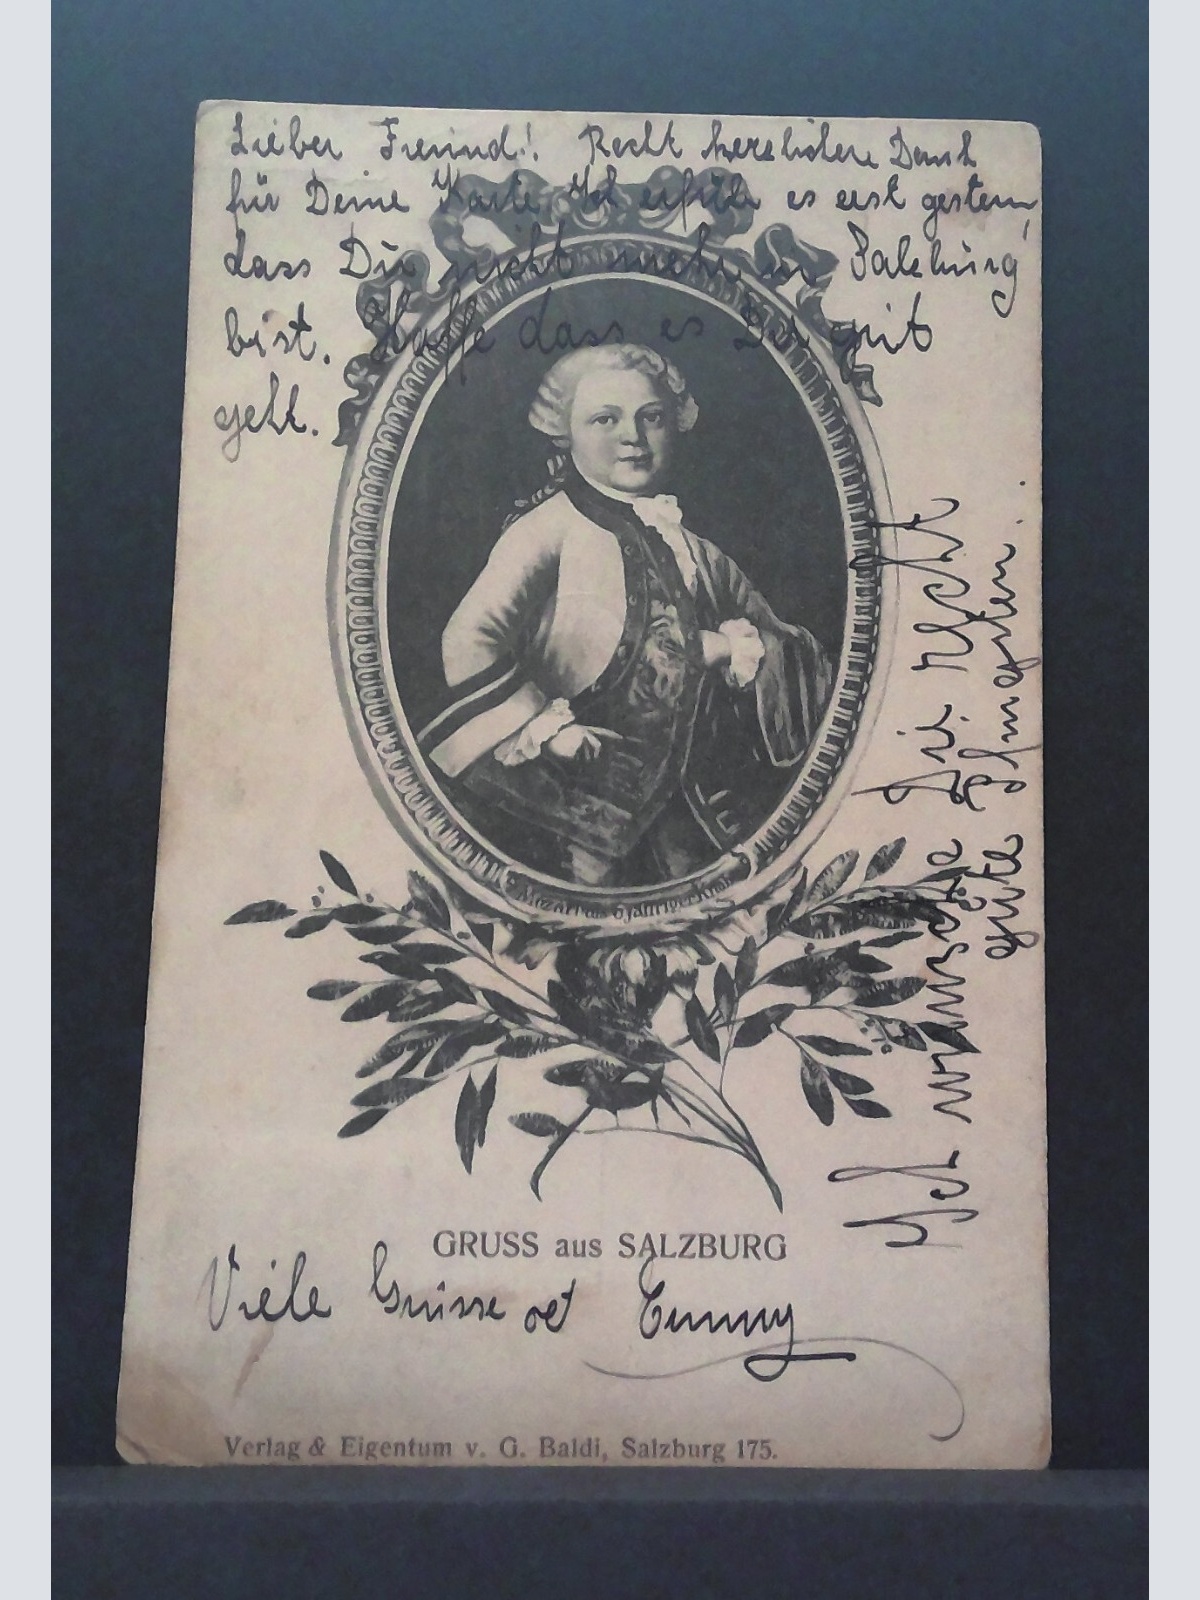 Lieber Freund! Recht herzlichen Dank
für Deine Karte Ich erfuhr es erst gestern,
dass Du nicht mehr in Salzburg
bist. Hoffe dass es Dir gut
geht.
Ich wünsche Dir recht
gute Pfingsten.
Mozart als 6 jähriger Knabe
GRUSS aus SALZBURG
Viele Grüsse
Verlag & Eigentum v. G. Baldi, Salzburg 175.